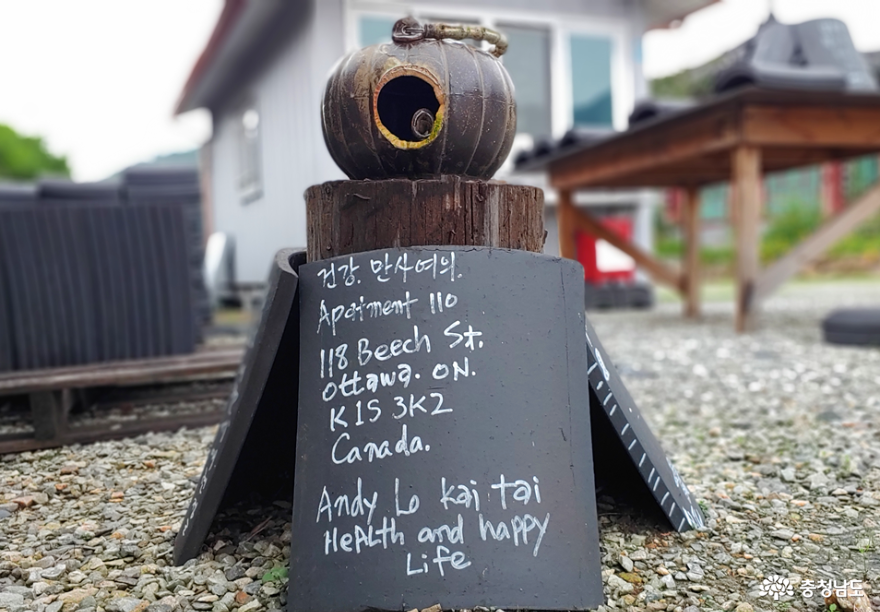 건강. 만사여의.
Apartment 110
118 Beech St.
Ottawa. ON.
K1S 3K2
Canada.
Andy Lo kai tai
HeALth and happy
Life
충청남도